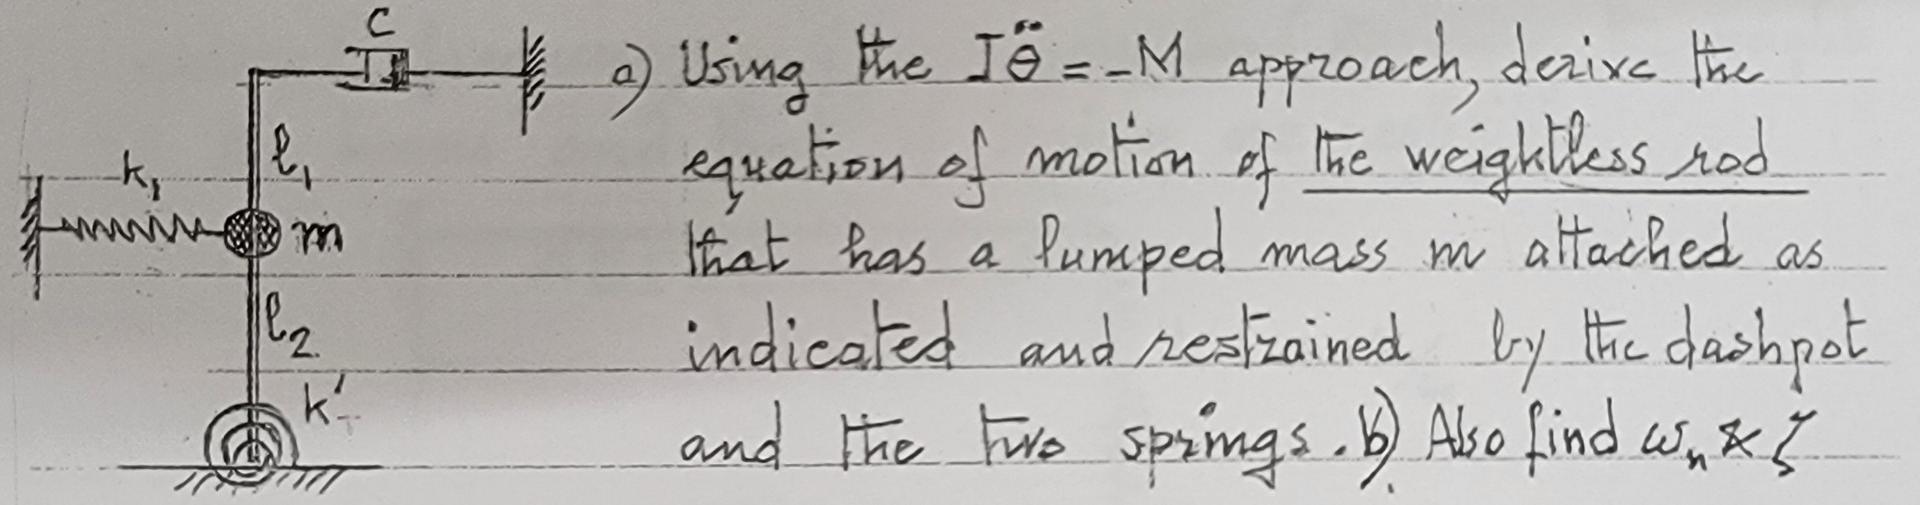 C
a) Using the Iθ̈ = -M approach, derive the
k₁ l₁ equation of motion of the weightless rod
m that has a lumped mass m attached as
l₂ indicated and restrained by the dashpot
k' and the two springs. b) Also find ωₙ & ζ